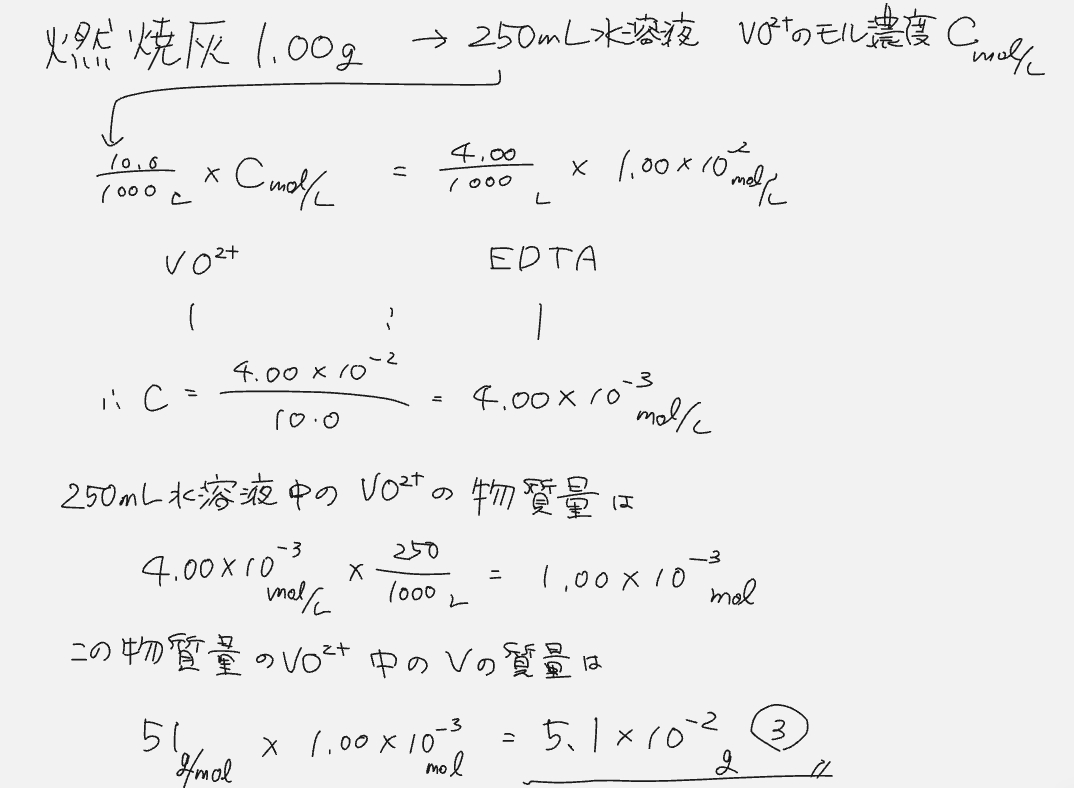 燃焼灰 1.00g → 250mL水溶液 VO²⁺のモル濃度 C mol/L
10.0/1000 L × C mol/L = 4.00/1000 L × 1.00×10⁻² mol/L
VO²⁺ EDTA
1 : 1
∴ C = 4.00×10⁻²/10.0 = 4.00×10⁻³ mol/L
250mL水溶液中の VO²⁺の物質量は
4.00×10⁻³ mol/L × 250/1000 L = 1.00×10⁻³ mol
この物質量のVO²⁺中のVの質量は
51 g/mol × 1.00×10⁻³ mol = 5.1×10⁻² g ③